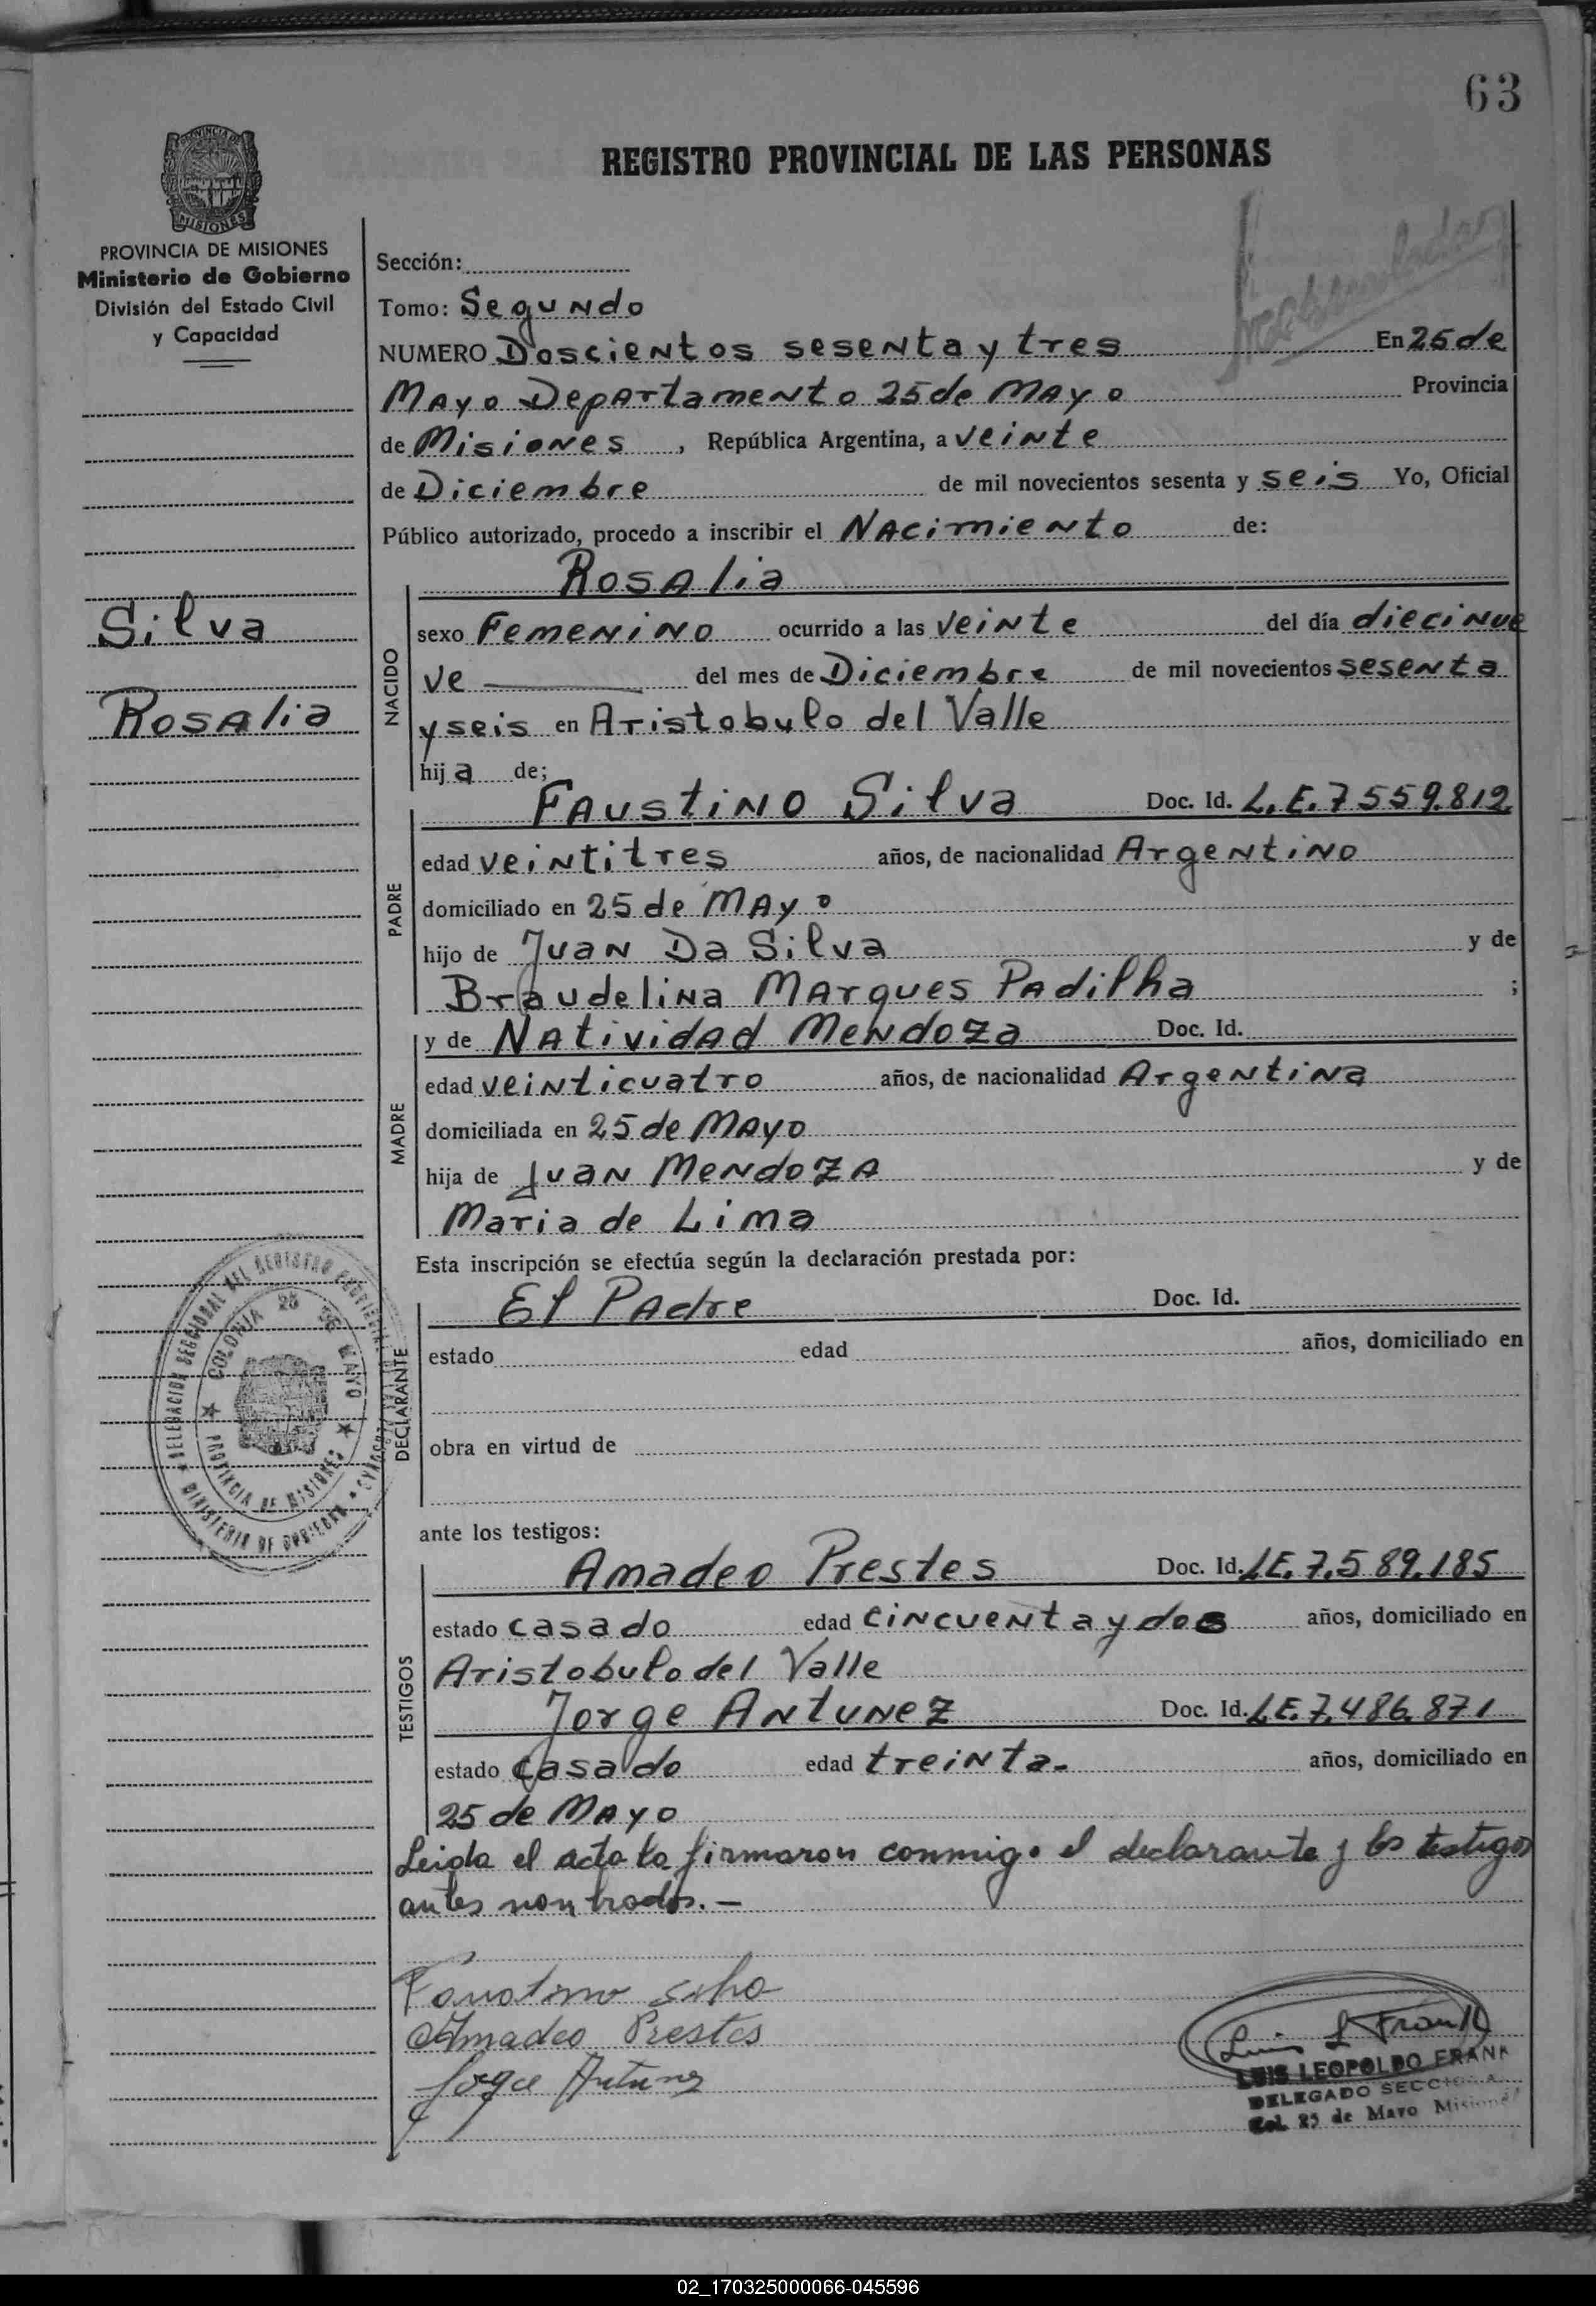 63
REGISTRO PROVINCIAL DE LAS PERSONAS
PROVINCIA DE MISIONES
Ministerio de Gobierno
División del Estado Civil
y Capacidad
Silva
Rosalia
Sección:
Tomo: Segundo
NUMERO Doscientos sesenta y tres En 25 de
Mayo Departamento 25 de Mayo Provincia
de Misiones, República Argentina, a veinte
de Diciembre de mil novecientos sesenta y seis Yo, Oficial
Público autorizado, procedo a inscribir el Nacimiento de:
NACIDO
Rosalia
sexo Femenino ocurrido a las veinte del día diecinue
ve del mes de Diciembre de mil novecientos sesenta
y seis en Aristobulo del Valle
hija de;
PADRE
Faustino Silva Doc. Id. L.E.7559.812
edad veintitres años, de nacionalidad Argentino
domiciliado en 25 de Mayo
hijo de Juan Da Silva y de
Braudelina Marques Padilha ;
MADRE
y de Natividad Mendoza Doc. Id.
edad veinticuatro años, de nacionalidad Argentina
domiciliada en 25 de Mayo
hija de Juan Mendoza y de
Maria de Lima
Esta inscripción se efectúa según la declaración prestada por:
DECLARANTE
El Padre Doc. Id.
estado edad años, domiciliado en
obra en virtud de
DELEGACION SECCIONAL DEL REGISTRO PROVINCIAL
COLONIA 25 DE MAYO
PROVINCIA DE MISIONES
MINISTERIO DE GOBIERNO
ante los testigos:
TESTIGOS
Amadeo Prestes Doc. Id. L.E.7.589.185
estado casado edad cincuenta y dos años, domiciliado en
Aristobulo del Valle
Jorge Antunez Doc. Id. L.E.7.486.871
estado casado edad treinta. años, domiciliado en
25 de Mayo
Leida el acta la firmaron conmigo el declarante y los testigos
antes nombrados.—
Faustino Silva
Amadeo Prestes
Jorge Antunez
Luis L Frank
LUIS LEOPOLDO FRANK
DELEGADO SECCIONAL
Col. 25 de Mayo Misiones
02_170325000066-045596